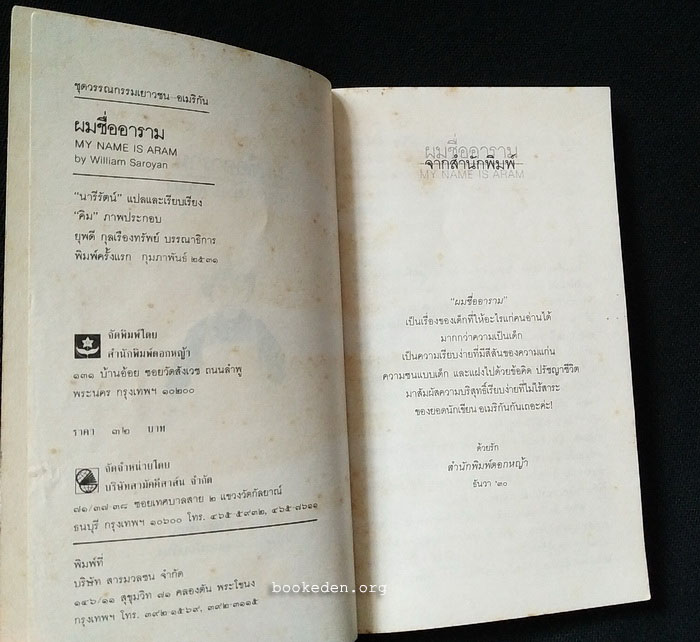 ชุดวรรณกรรมเยาวชน-อเมริกัน
ผมชื่ออาราม
MY NAME IS ARAM
by William Saroyan
"นารีรัตน์" แปลและเรียบเรียง
"คิม" ภาพประกอบ
ยุพดี กุลเรืองทรัพย์ บรรณาธิการ
พิมพ์ครั้งแรก กุมภาพันธ์ ๒๕๓๑
จัดพิมพ์โดย
สำนักพิมพ์ดอกหญ้า
๑๓๑ บ้านอ้อย ซอยวัดสังเวช ถนนลำพู
พระนคร กรุงเทพฯ ๑๐๒๐๐
ราคา ๓๒ บาท
จัดจำหน่ายโดย
บริษัทสามัคคีสาส์น จำกัด
๗๑/๓๗-๓๘ ซอยเทศบาลสาย ๒ แขวงวัดกัลยาณ์
ธนบุรี กรุงเทพฯ ๑๐๖๐๐ โทร. ๔๖๕-๕๙๓๒, ๔๖๕-๗๖๑๑
พิมพ์ที่
บริษัท สารมวลชน จำกัด
๑๔๖/๑๑ สุขุมวิท ๗๑ คลองตัน พระโขนง
กรุงเทพฯ โทร. ๓๙๒-๑๕๖๙, ๓๙๒-๓๑๑๕
ผมชื่ออาราม
จากสำนักพิมพ์
MY NAME IS ARAM
"ผมชื่ออาราม"
เป็นเรื่องของเด็กที่ให้อะไรแก่คนอ่านได้
มากกว่าความเป็นเด็ก
เป็นความเรียบง่ายที่มีสีสันของความแก่น
ความซนแบบเด็ก และแฝงไปด้วยข้อคิด ปรัชญาชีวิต
มาสัมผัสความบริสุทธิ์เรียบง่ายที่ไม่ไร้สาระ
ของยอดนักเขียนอเมริกันกันเถอะค่ะ!
ด้วยรัก
สำนักพิมพ์ดอกหญ้า
ธันวา '๓๐
bookeden.org